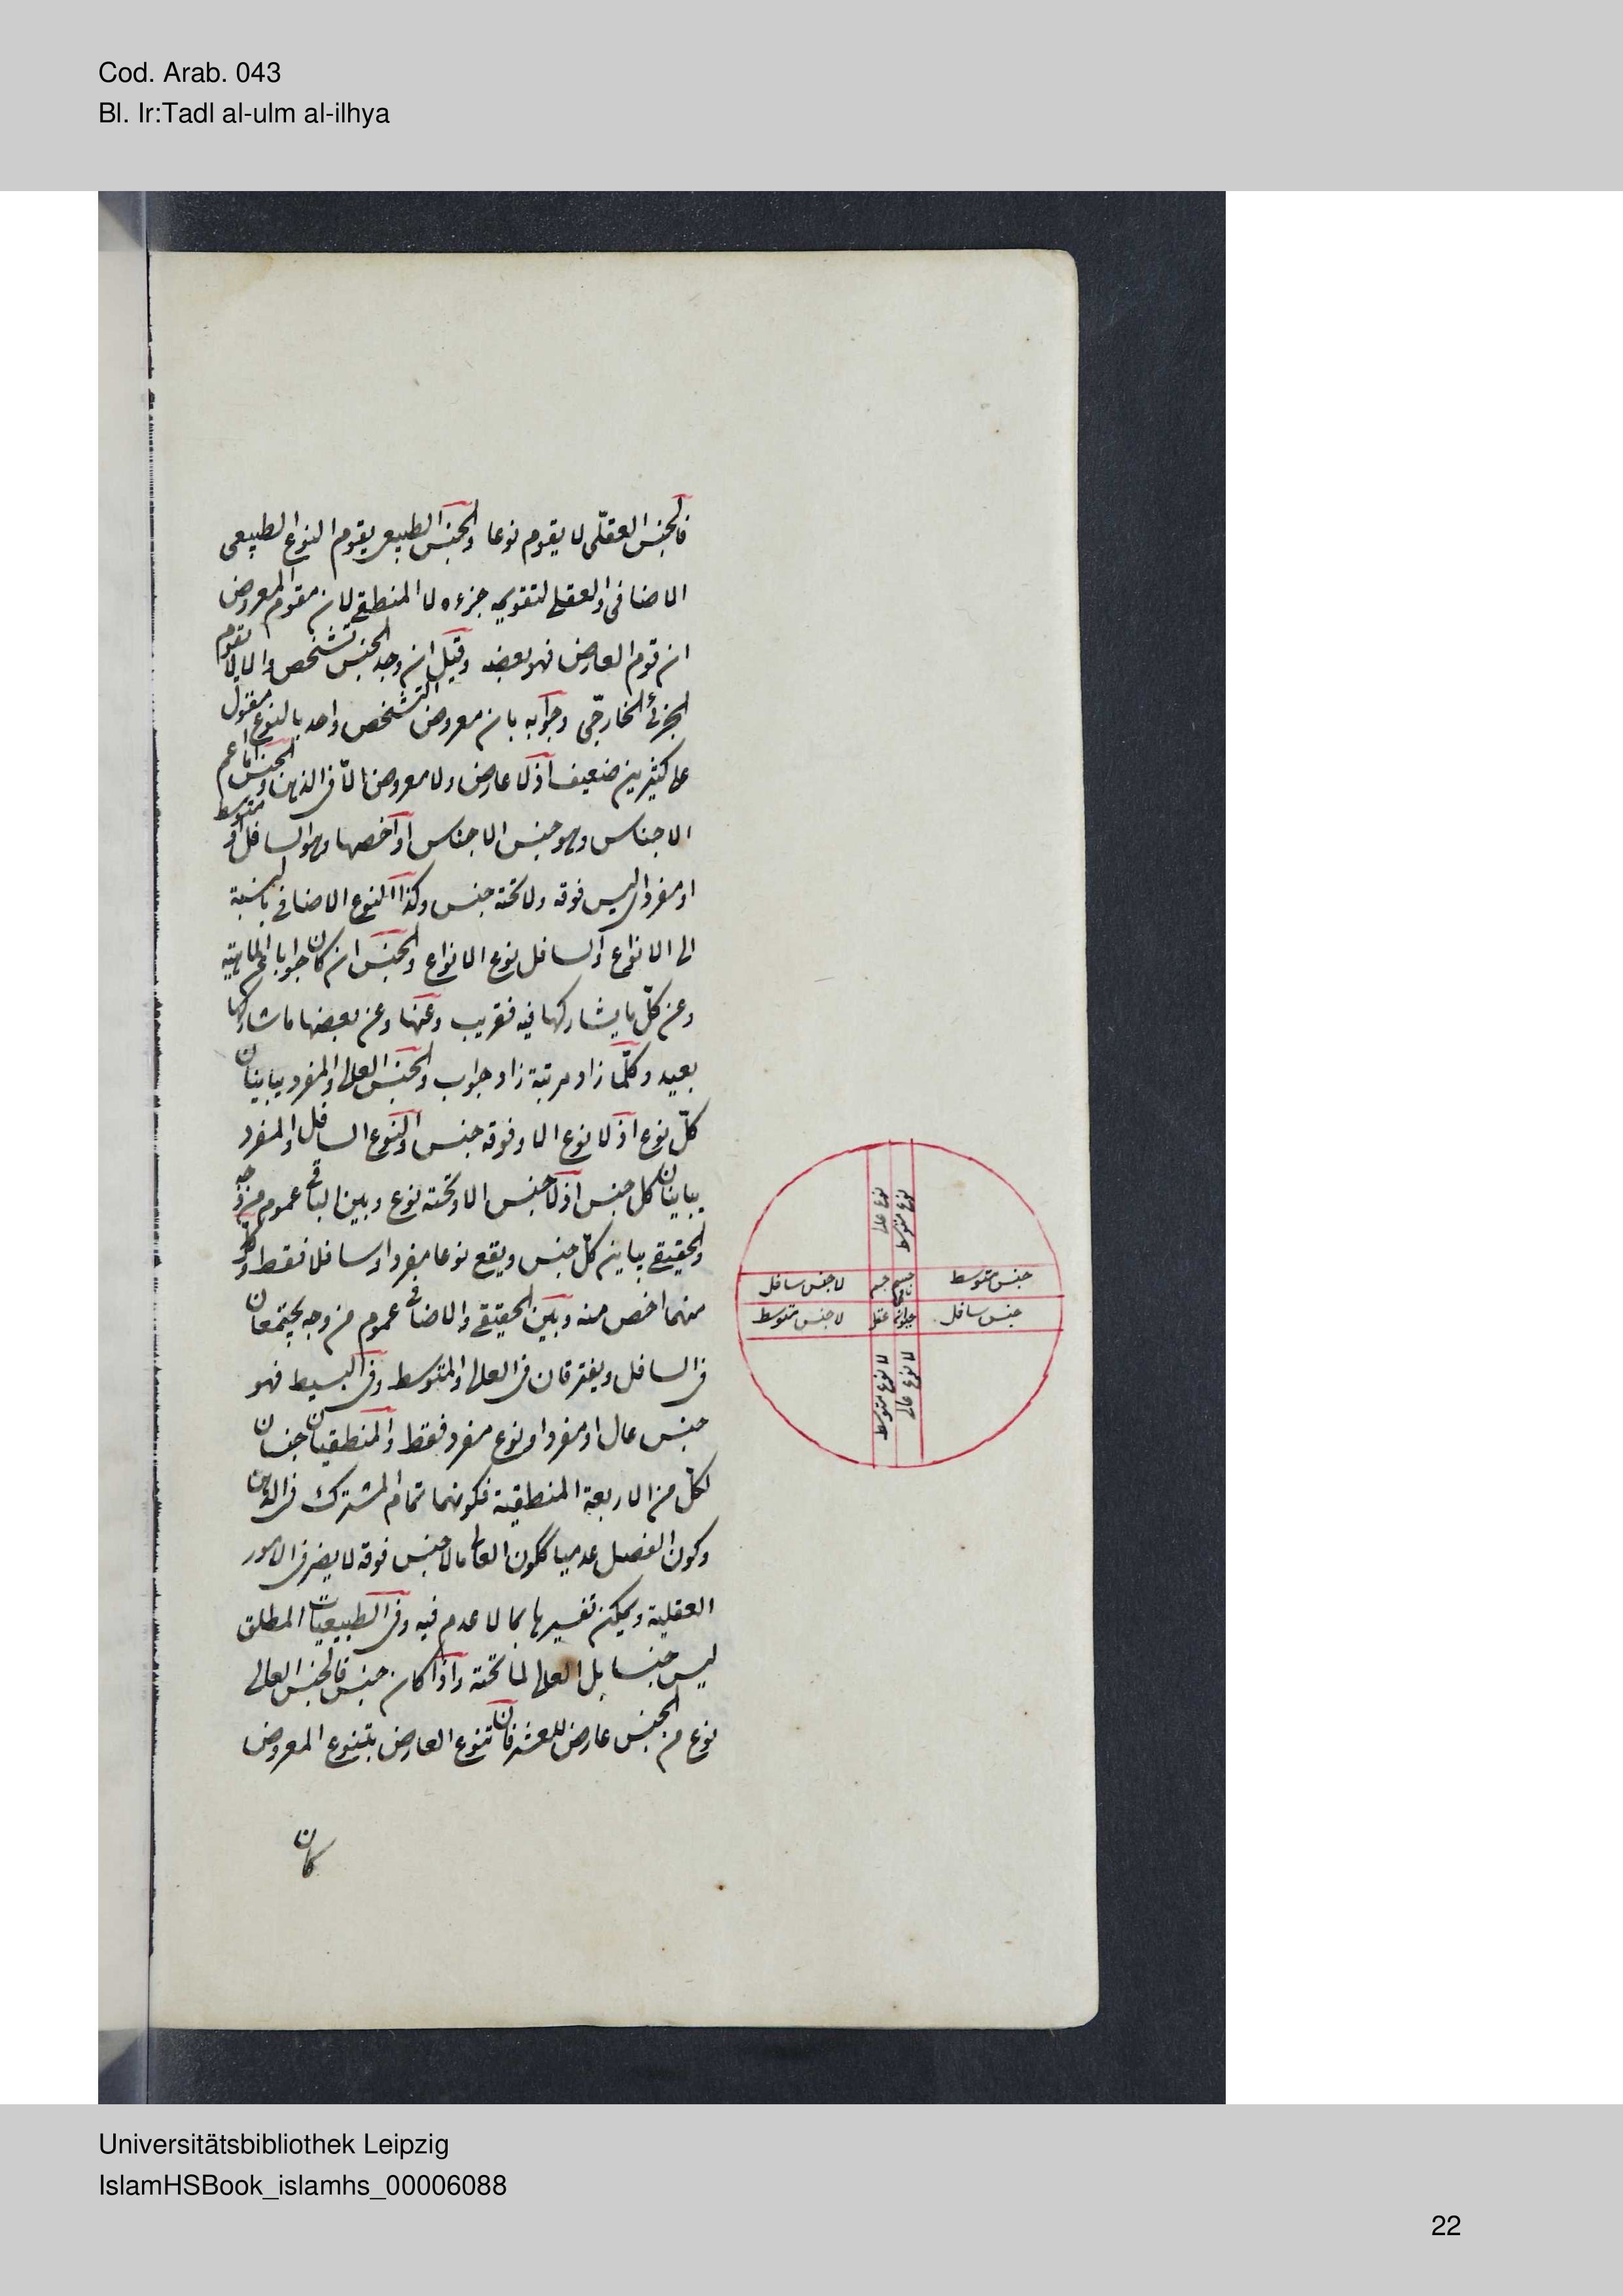 Cod. Arab. 043
Bl. Ir:Tadl al-ulm al-ilhya
فالجنس العقلى لا يقوم نوعا والجنس الطبيعى يقوم النوع الطبيعى
الاضافى والعقلى لتقويمه جزءه لا المنطقى لان مقوم المعروض
ان قوم العارض فهو بعضه وقيل ان وجد الجنس تشخص والا لا يقوم
الجزئى الخارجى وجوابه بان معروض التشخص واحد بالنوع مقول
على كثيرين ضعيف اذ لا عارض ولا معروض الا فى الذهن والجنس اما اعم
الاجناس وهو جنس الاجناس او اخصها وهو السافل او متوسط
او مفرد ليس فوقه ولا تحته جنس وكذا النوع الاضافى بالنسبة
الى الانواع والسافل نوع الانواع والجنس ان كان جوابا عن الماهية
وعن كل ما يشاركها فيه فقريب وعنها وعن بعضها ما شاركها
بعيد وكلما زاد مرتبة زاد جواب والجنس العالى والمفرد يباينان
كل نوع اذ لا نوع الا وفوقه جنس والنوع السافل والمفرد
يباينان كل جنس اذ لا جنس الا وتحته نوع وبين البواقى عموم من وجه
والحقيقى يباين كل جنس ويقع نوعا مفردا وسافلا فقط وكل
منهما اخص منه وبين الحقيقى والاضافى عموم من وجه يجتمعان
فى السافل ويفترقان فى العالى والمتوسط وفى البسيط فهو
جنس عال او مفرد او نوع مفرد فقط والمنطقيان جنسان
لكل من الاربعة المنطقية فكونهما تمام المشترك فى الذهن
وكون الفصل عدميا ككون العالى ما لا جنس فوقه لا يضر فى الامور
العقلية ويمكن تفسيرها بما لا عدم فيه وفى الطبيعيات المطلق
ليس جنسا بل العالى لما تحته واذا كان جنس فالجنس العالى
نوع من الجنس عارض للعشر فان تنوع العارض بتنوع المعروض
كان
نوع عالى
نوع متوسط
جنس متوسط
جسم
لا جنس سافل
جنس سافل
عقل
لا جنس متوسط
لا نوع متوسط
لا نوع عالى
Universitätsbibliothek Leipzig
IslamHSBook_islamhs_00006088
22